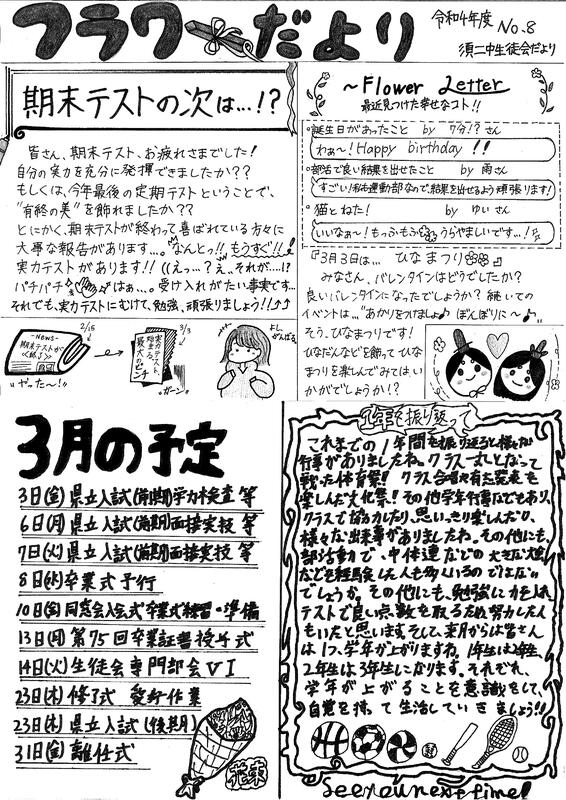 フラワーだより
令和4年度 No.8
須二中生徒会だより
期末テストの次は…!?
皆さん、期末テスト、お疲れさまでした!
自分の実力を充分に発揮できましたか??
もしくは、今年最後の定期テストということで、
"有終の美"を飾れましたか??
とにかく、期末テストが終わって喜ばれている方々に
大事な報告があります…。なんとっ!!もうすぐ!!
実力テストがあります!!((えっ…?え、それが…!?
パチパチ はぁ…。受け入れがたい事実です…
それでも、実力テストにむけて、勉強、頑張りましょう!!
2/15
-NEWS-
期末テストが
終了
"やった~!"
3/3
実力テスト、
始まる。
最大のピンチ
"ガーン"
よし、
がんばる。
~Flower Letter
最近見つけた幸せなコト!!
誕生日があったこと by 7分!?さん
わぁ~!Happy birthday!!
部活で良い結果を出せたこと by 雨さん
すごい!私も運動部なので、結果を出せるよう頑張ります!
猫とねた! by ゆいさん
いいなぁ~!もっふもふうらやましいです…!
『3月3日は… ひなまつり』
みなさん、バレンタインはどうでしたか?
良いバレンタインになったでしょうか?続いての
イベントは…"あかりをつけましょ♪ ぼんぼりに~♪"
そう、ひなまつりです!
ひなだんなどを飾ってひな
まつりを楽しんでみてはい
かがでしょうか!?
3月の予定
3日(金)県立入試(前期)学力検査 等
6日(月)県立入試(前期)面接実技 等
7日(火)県立入試(前期)面接実技 等
8日(水)卒業式予行
10日(金)同窓会入会式 卒業式練習・準備
13日(月)第75回卒業証書授与式
14日(火)生徒会専門部会Ⅵ
23日(木)修了式 愛校作業
23日(木)県立入試(後期)
31日(金)離任式
花束
1年を振り返って
これまでの1年間を振り返ると様々な
行事がありましたね。クラス一丸となって
戦った体育祭!クラス合唱や有志発表も
楽しんだ文化祭!その他学年行事などもあり、
クラスで協力したり、思いっきり楽しんだり、
様々な出来事がありましたね。その他にも、
部活動で、中体連などの大きな大会
などを経験した人も多くいるのではない
でしょうか。その他にも、勉強に力を入れ
テストで良い点数を取るため努力した人
もいたと思います。そして、来月からは皆さん
は1つ、学年が上がりますね。1年生は2年生、
2年生は3年生になります。それぞれ、
学年が上がることを意識をして、
自覚を持って生活していきましょう!!
See you next time!